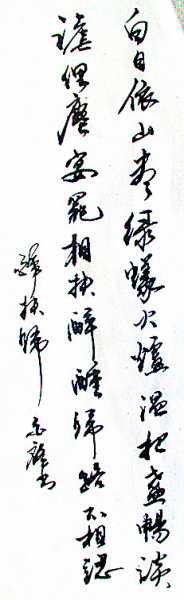 白日依山尽绿蚁火炉温把盏畅谈
谁俚广宴罢相扶醉醺归路不相认
醉扶归